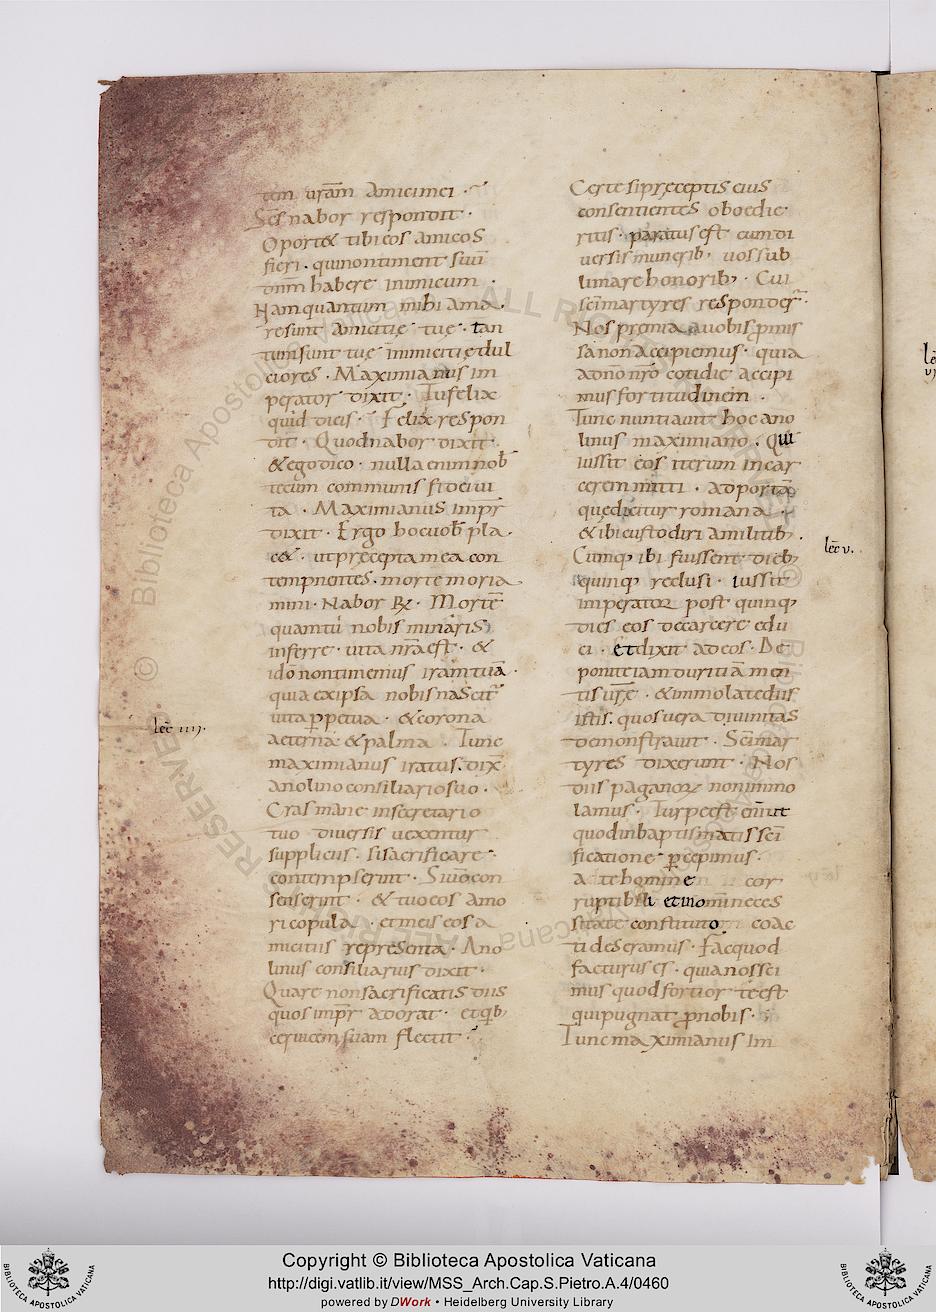 tem uram amicimei ·
Scs nabor respondit ·
Oport& tibi eos amicos
fieri · qui non timent suū
dnm habere inimicum ·
Nam quantum mihi ama
re sunt amicitię tuę · tan
tum sunt tuę inimicitię dul
ciores · Maximianus im
perator dixit · Tu felix
quid dicis · Felix respon
dit · Quod nabor dixit ·
& ego dico · nulla enim nob
tecum communis fidei ui
ta · Maximianus impr
dixit · Ergo hoc uob pla
c& · ut precepta mea con
tempnentes · morte moria
mini · Nabor R · Mortē
quantū nobis minaris
inferre · uita nra est · &
ido non timemus iram tuā ·
quia ex ipsa nobis nascit
uita ppetua · & corona
aeterna & palma · Tunc
maximianus iratus · dix
anolino consiliario suo ·
Cras mane in secretario
tuo diuersis uexentur
suppliciis · si sacrificare ·
contempserint · Si uo con
senserint · & tuo eos amo
ri copula · et meis eos a
micitiis representa · Ano
linus consiliarius dixit ·
Quare non sacrificatis diis
quos impr adorat · et qb;
ceruicem suam flectit ·
Certe si pręceptis eius
consentientes oboedie
ritis · paratus est cum di
uersis munerib; uos sub
limare honorib; · Cui
sci martyres responder ·
Nos premia a uobis pmis
sa non accipiemus · quia
a dno nro cotidie accipi
mus fortitudinem ·
Tunc nuntiauit hoc ano
linus maximiano · Qui
iussit eos iterum in car
cerem mitti · ad portā
quę dicitur romana ·
& ibi custodiri a militib; ·
Cumq; ibi fuissent dieb;
quinq; reclusi · iussit
imperator post quinq;
dies eos de carcere edu
ci · et dixit ad eos · De
ponite iam duritiā men
tis urę · & immolate diis
istis · quos uera diuinitas
demonstrauit · Sci mar
tyres dixerunt · Nos
diis paganorz non immo
lamus · Turpe est enim ut
quod in baptismatis sci
ficatione pcepimus ·
a te homine cor
ruptibili et in omni neces
sitate constituto coac
ti deseramus · Fac quod
facturus es · quia nos sci
mus quod fortior te est
qui pugnat p nobis ·
Tunc maximianus im
lec iiij.
lec v.
Copyright © Biblioteca Apostolica Vaticana
http://digi.vatlib.it/view/MSS_Arch.Cap.S.Pietro.A.4/0460
powered by DWork • Heidelberg University Library